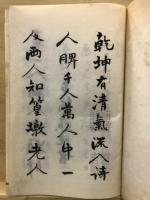 乾坤有清氣入詩
人脾千人萬人中一
人兩人知篁墩老人